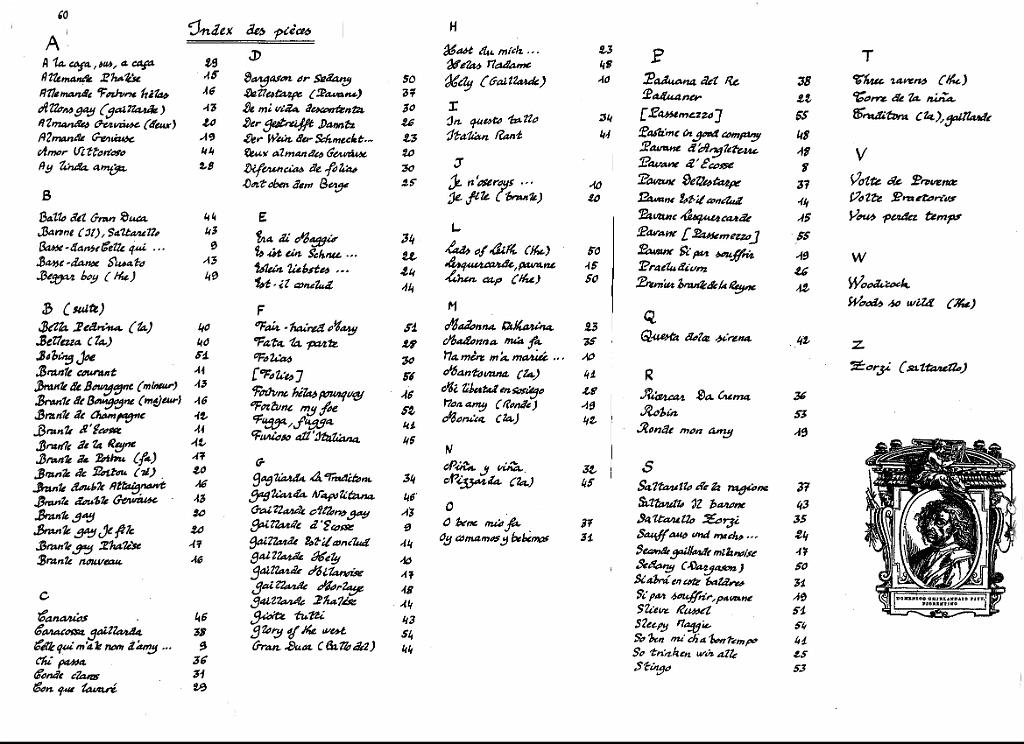 60
Index des pièces
A
A la caça, sus, a caça 29
Allemande Phalèse 15
Allemande Fortune hélas 16
Allons gay (gaillarde) 13
Almandes Gervaise (deux) 20
Almande Gervaise 19
Amor Vittorioso 44
Ay linda amiga 28
B
Ballo del Gran Duca 44
Barone (Il), Saltarello 43
Basse-danse Celle qui ... 9
Basse-danse Susato 13
Beggar boy (the) 49
B (suite)
Bella Pedrina (la) 40
Bellezza (la) 40
Bobing Joe 51
Branle courant 11
Branle de Bourgogne (mineur) 13
Branle de Bourgogne (majeur) 16
Branle de Champagne 12
Branle d'Ecosse 11
Branle de la Reyne 12
Branle de Poitou (fa) 17
Branle de Poitou (ré) 20
Branle double Attaignant 16
Branle double Gervaise 13
Branle gay 20
Branle gay Je file 20
Branle gay Phalèse 17
Branle nouveau 16
C
Canarios 46
Caracossa gaillarda 38
Celle qui m'a le nom d'amy ... 9
Chi passa 36
Conde claros 31
Con que lavaré 29
D
Dargason or Sedany 50
Dellestarpe (Pavane) 37
De mi vida descontenta 30
Der gestreifft Danntz 26
Der Wein der Schmeckt... 23
Deux almandes Gervaise 20
Diferencias de folias 30
Dort oben dem Berge 25
E
Era di Maggio 34
Es ist ein Schnee ... 22
Eslein liebstes ... 24
Est-il conclud 14
F
Fair-haired Mary 51
Fata la parte 28
Folias 30
[Folies] 56
Fortune hélas pourquoy 16
Fortune my foe 52
Fugga, fugga 41
Furioso all'Italiana 45
G
Gagliarda La Traditora 34
Gagliarda Napolitana 46
Gaillarde Allons gay 13
Gaillarde d'Ecosse 9
Gaillarde Est'il conclud 14
Gaillarde Hely 10
Gaillarde Milanoise 17
Gaillarde Morlaye 18
Gaillarde Phalèse 14
Gioite tutti 43
Glory of the west 54
Gran Duca (Ballo del) 44
H
Hast du mich ... 23
Hélas Madame 48
Hely (Gaillarde) 10
I
In questo ballo 34
Italian Rant 41
J
Je n'oseroys ... 10
Je file (branle) 20
L
Lads of Leith (the) 50
Lesquercarde, pavane 15
Linen cap (the) 50
M
Madonna Katharina 23
Madonna mia fa 35
Ma mère m'a mariée ... 10
Mantovana (la) 41
Mi libertad en sosiego 28
Mon amy (Ronde) 19
Monica (la) 42
N
Niña y viña 32
Nizzarda (la) 45
O
O bene mio fa 37
Oy comamos y bebemos 31
P
Paduana del Re 38
Paduaner 22
[Passemezzo] 55
Pastime in good company 48
Pavane d'Angleterre 18
Pavane d'Ecosse 8
Pavane Dellestarpe 37
Pavane Est'il conclud 14
Pavane Lesquercarde 15
Pavane [Passemezzo] 55
Pavane Si par souffrir 19
Praeludium 26
Premier branle de la Reyne 12
Q
Questa dolce sirena 42
R
Ricercar Da Crema 36
Robin 53
Ronde mon amy 19
S
Saltarello de la ragione 37
Saltarello Il barone 43
Saltarello Zorzi 35
Sauff aus und machs ... 24
Seconde gaillarde milanoise 17
Sedany (Dargason) 50
Si abrá en este baldres 31
Si par souffrir, pavane 19
Slieve Russel 51
Sleepy Maggie 54
So ben mi ch'a bon tempo 41
So trinken wir alle 25
Stingo 53
T
Three ravens (the)
Torre de la niña
Traditora (la), gaillarde
V
Volte de Provence
Volte Praetorius
Vous perdez temps
W
Woodicock
Woods so wild (the)
Z
Zorzi (saltarello)
DOMENICO GHIRLANDAIO PITT.
FIORENTINO